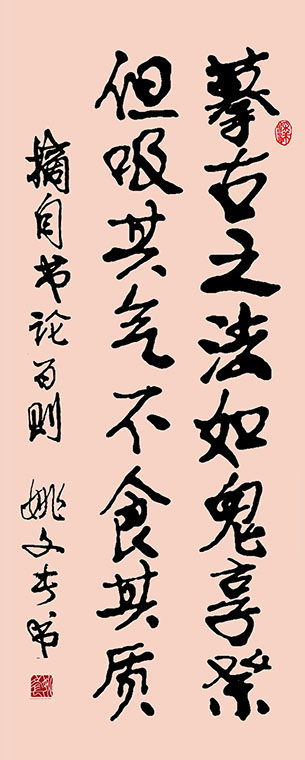 摹古之法如鬼享祭
但吸其气不食其质
摘自书论百则 姚文奇书